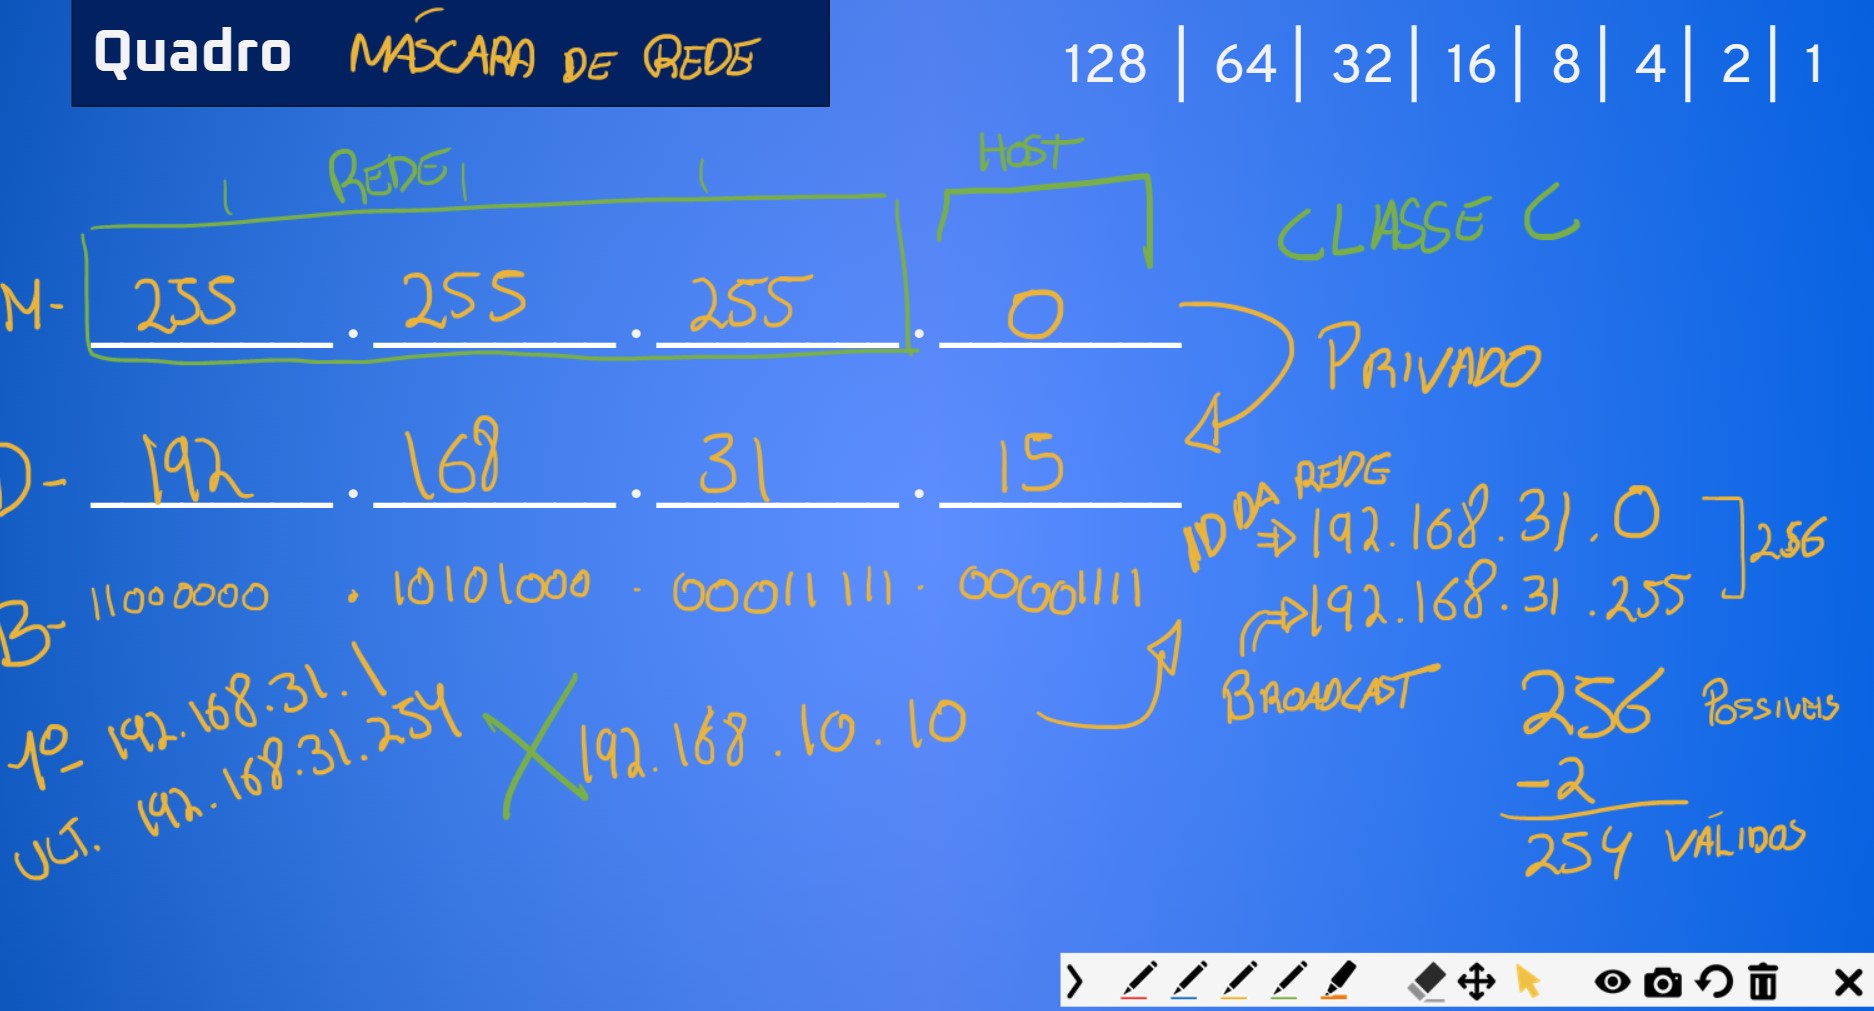 Quadro MÁSCARA DE REDE
128 | 64 | 32 | 16 | 8 | 4 | 2 | 1
REDE HOST
CLASSE C
M- 255 . 255 . 255 . 0
PRIVADO
D- 192 . 168 . 31 . 15
ID DA REDE ⇒ 192.168.31.0
256
B- 11000000 . 10101000 . 00011111 . 00001111
⇒ 192.168.31.255
BROADCAST
1º- 192.168.31.1
ULT. 192.168.31.254
X 192.168.10.10
256 POSSIVEIS
-2
254 VÁLIDOS